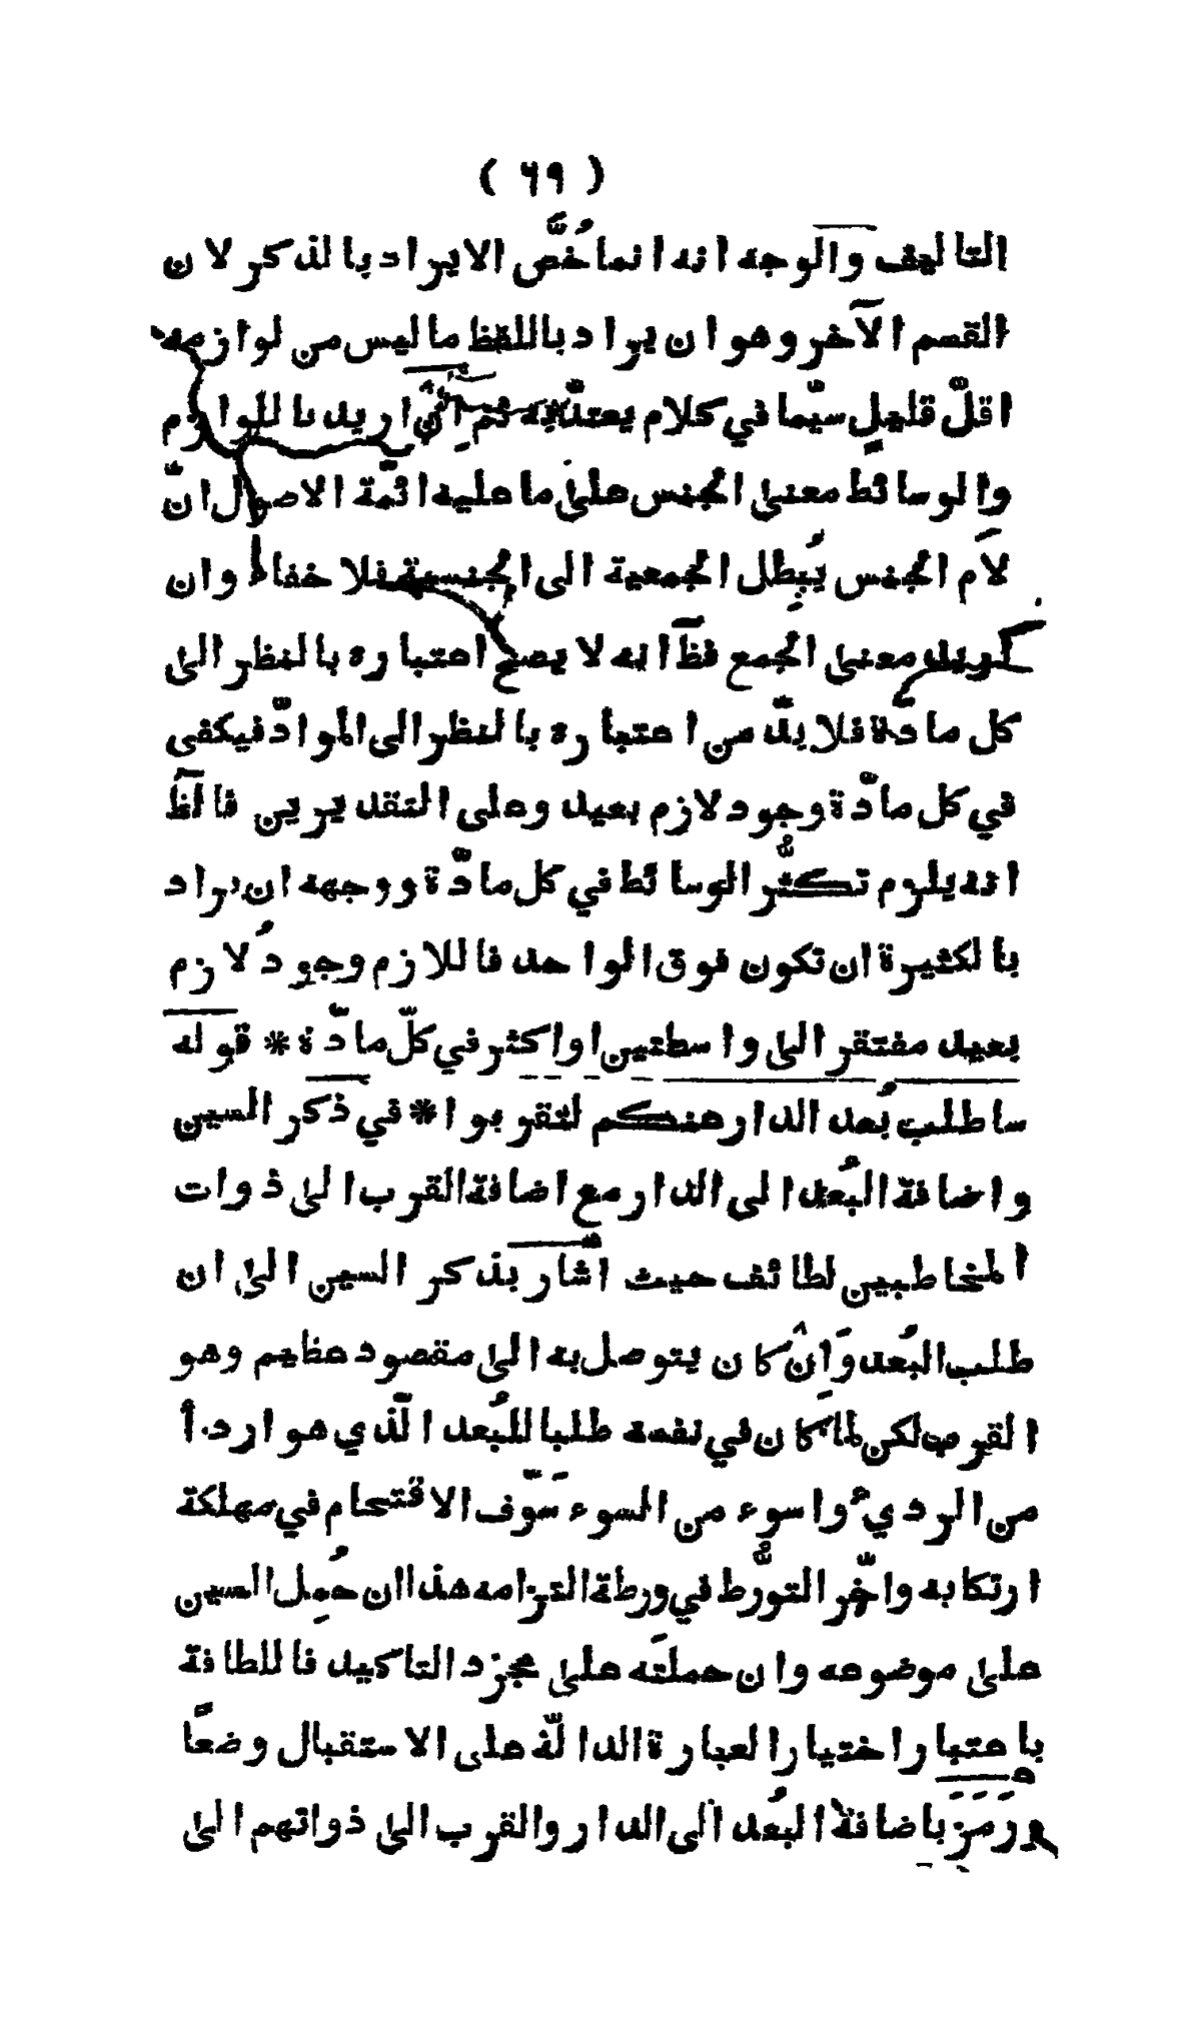 ( ٦٩ )
التاليف والوجه انه انما خُصَّ الايراد بالذكر لان
القسم الآخر وهو ان يراد باللفظ ما ليس من لوازمه
اقلّ قليلٍ سيّما في كلام يعتدّ به ثم اِنْ اريد باللوازم
والوسائط معنى الجنس على ما عليه ائمّة الاصول انّ
لامَ الجنس يُبطِل الجمعية الى الجنسية فلا خفاء وان
اُريد معنى الجمع فظَ انه لا يصح اعتباره بالنظر الى
كل مادّة فلا بدّ من اعتباره بالنظر الى الموادّ فيكفى
في كل مادّة وجود لازم بعيد وعلى التقديرين فالظَ
انه يلزم تكثُّر الوسائط في كل مادّة ووجهه ان يراد
بالكثيرة ان تكون فوق الواحد فاللازم وجودُ لازم
بعيد مفتقر الى واسطتين او اكثر في كلّ مادّة * قوله
ساطلب بُعد الدار عنكم لتقربوا * في ذكر السين
واضافة البُعد الى الدار مع اضافة القرب الى ذوات
المخاطبين لطائف حيث اشار بذكر السين الى ان
طلب البُعد وَاِنْ كان يتوصل به الى مقصود عظيم وهو
القرب لكن لما كان في نفسه طلبا للبُعد الّذي هو اردأ
من الردي واسوء من السوء سَوّف الاقتحام في مهلكة
ارتكابه واخّر التورُّط في ورطة التزامه هذا ان حُمِل السين
على موضوعه وان حملتَه على مجرد التاكيد فاللطافة
باعتبار اختيار العبارة الدالّة على الاستقبال وضعًا
ورَمَزَ باضافة البُعد الى الدار والقرب الى ذواتهم الى